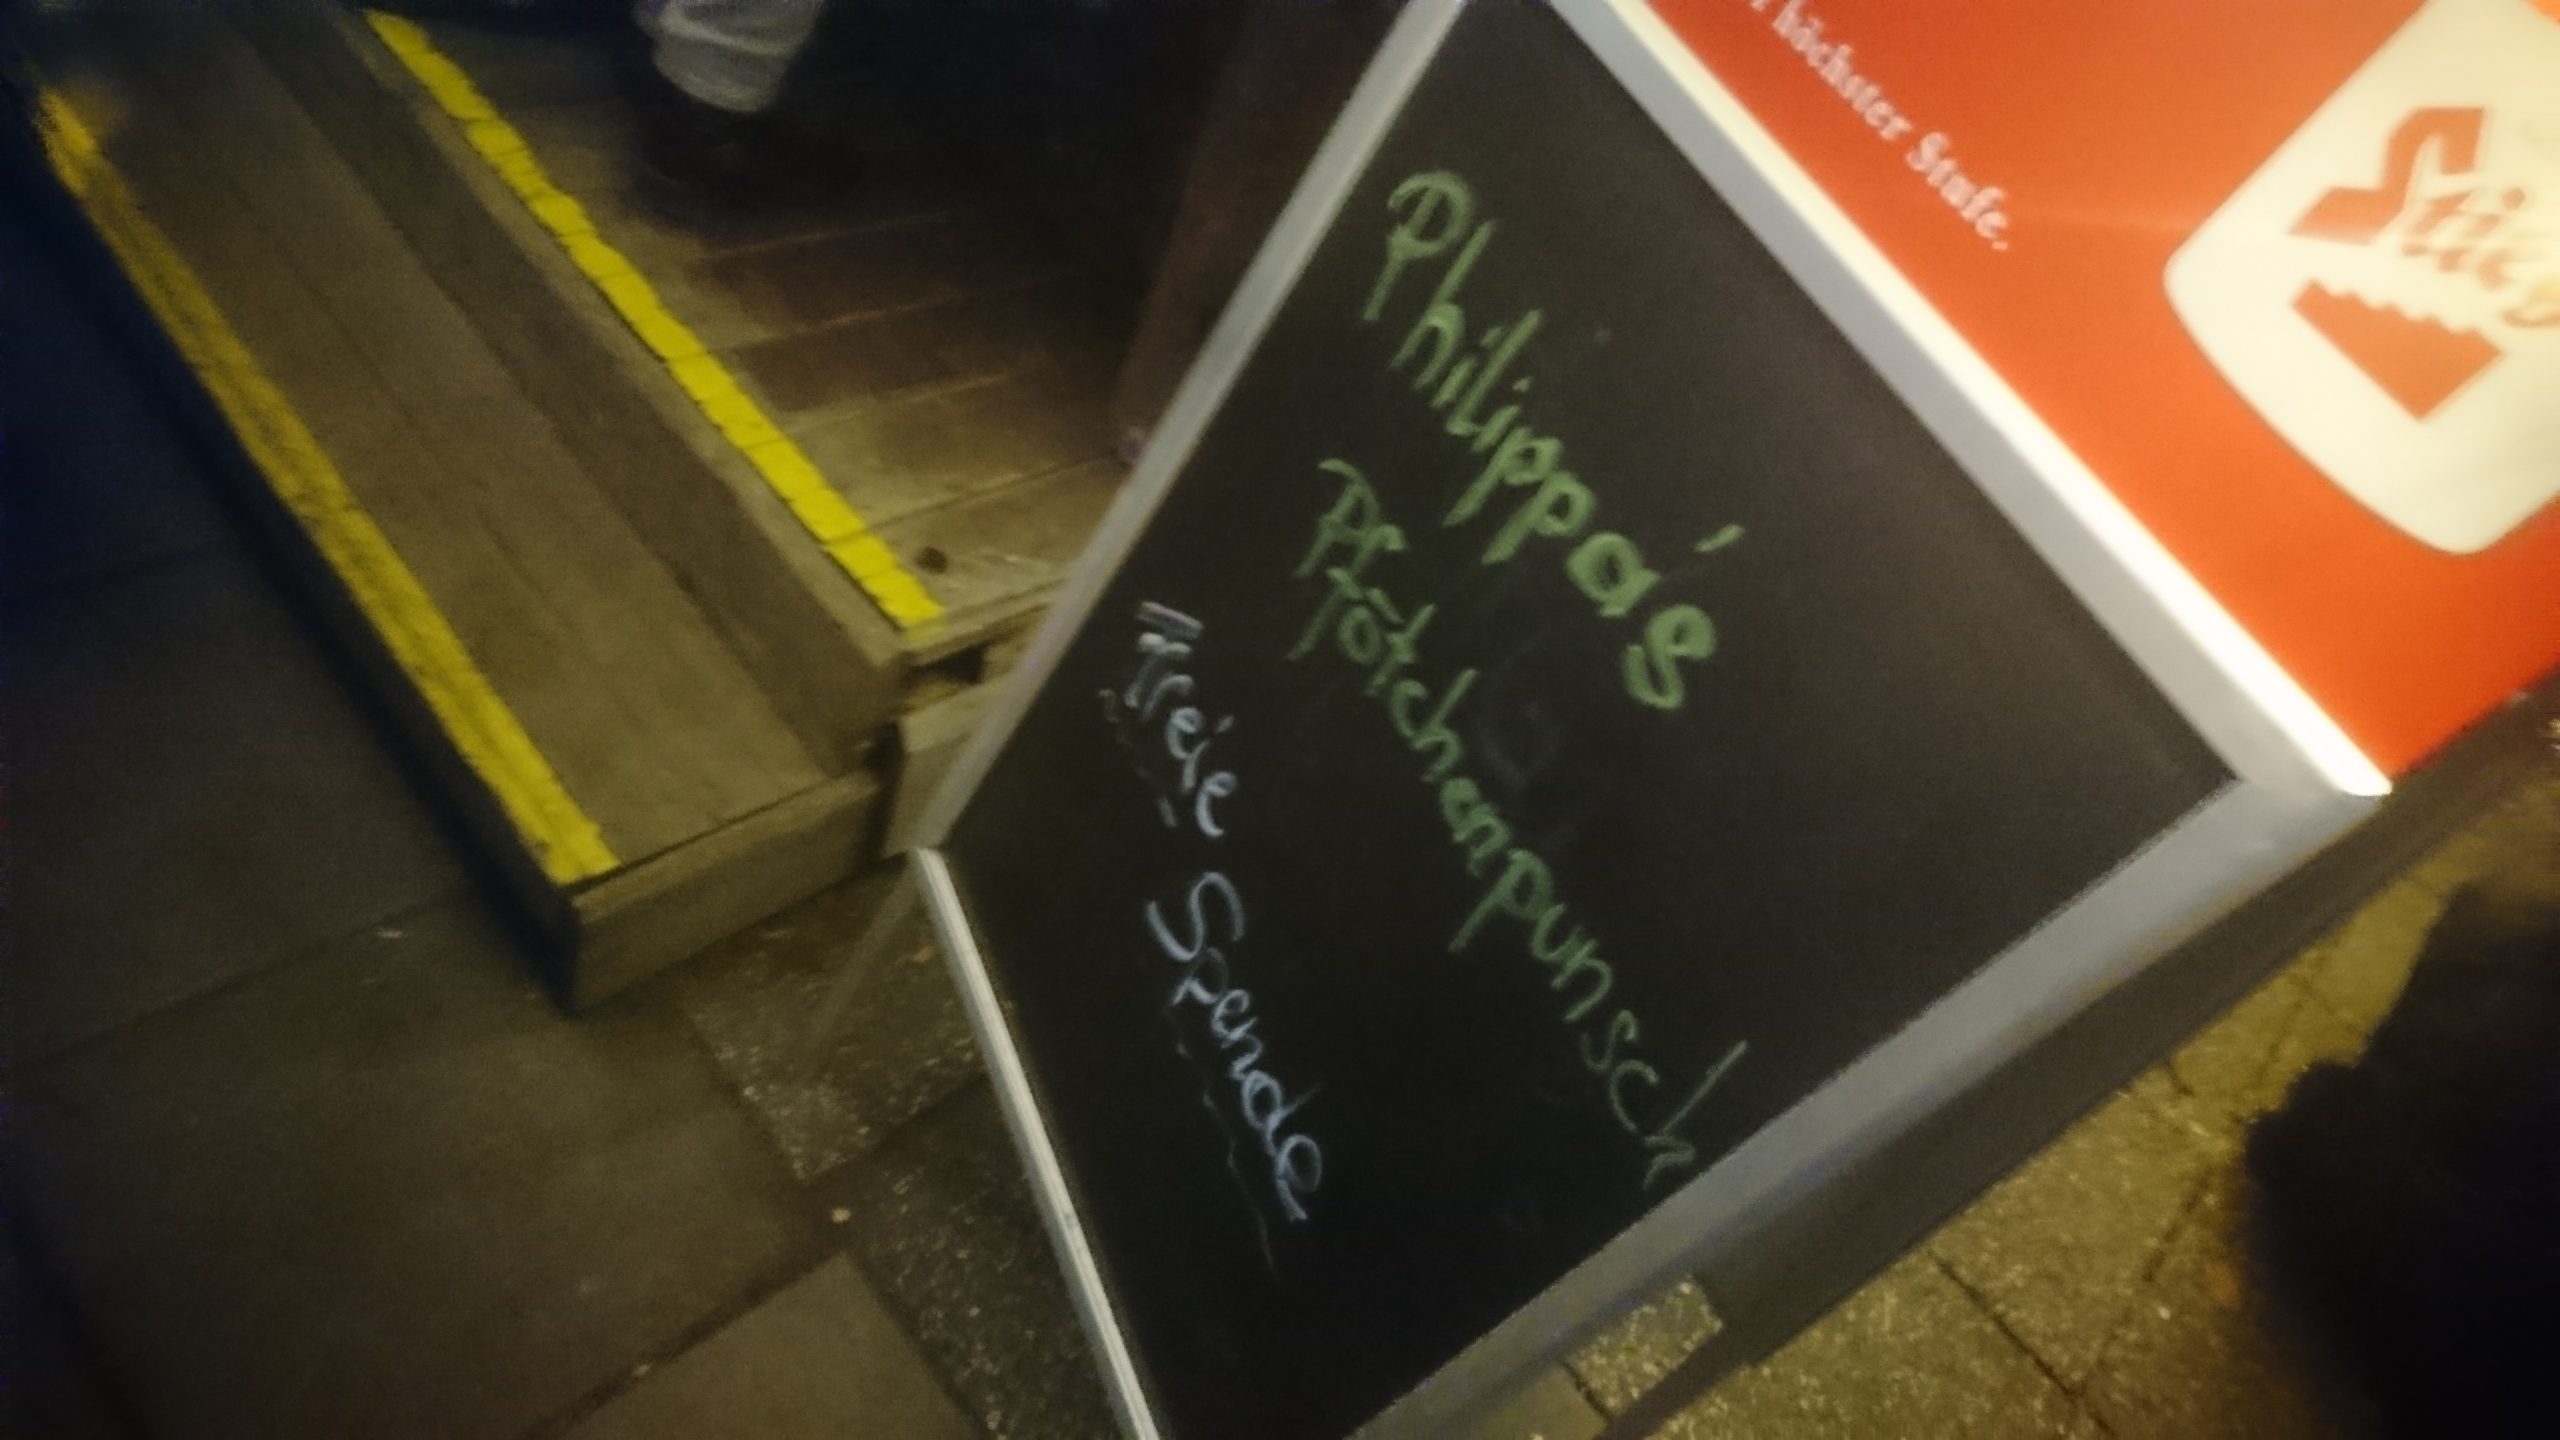 höchster Stufe.
Stieg
Philippa's
Pfötchenpunsch
freie Spende